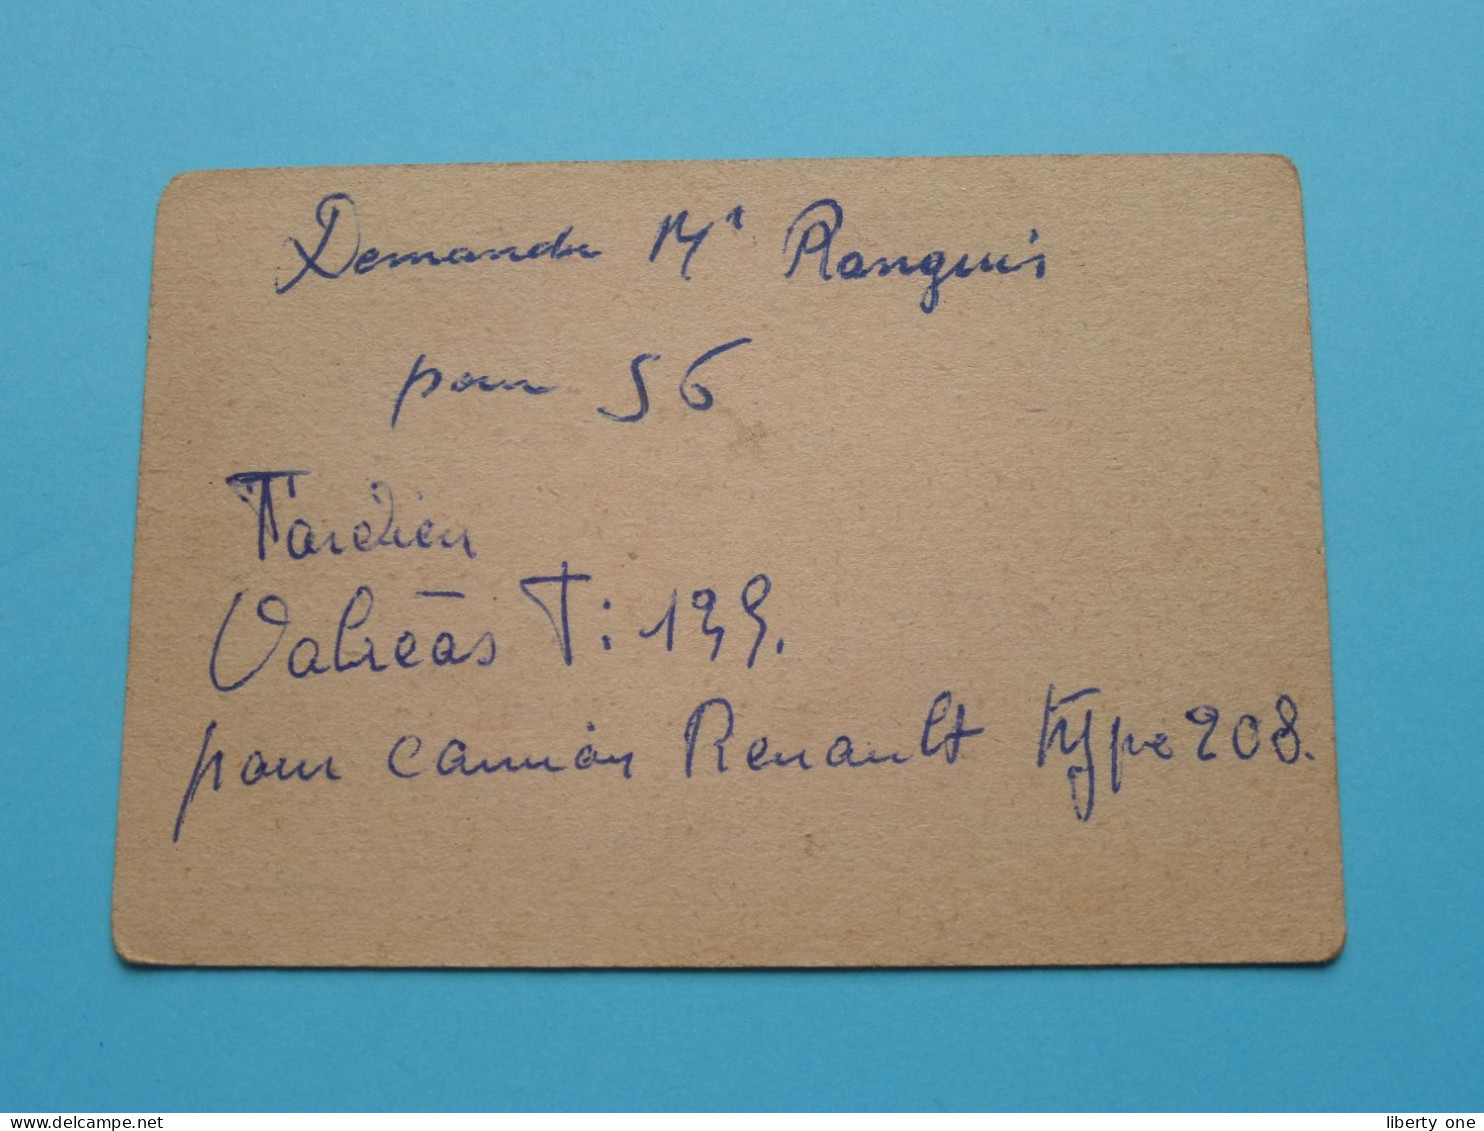 Demander Mr Ranguis
pour 56
Tardieu
Valréas T: 199.
pour camion Renault type 208.
www.delcampe.net
liberty one